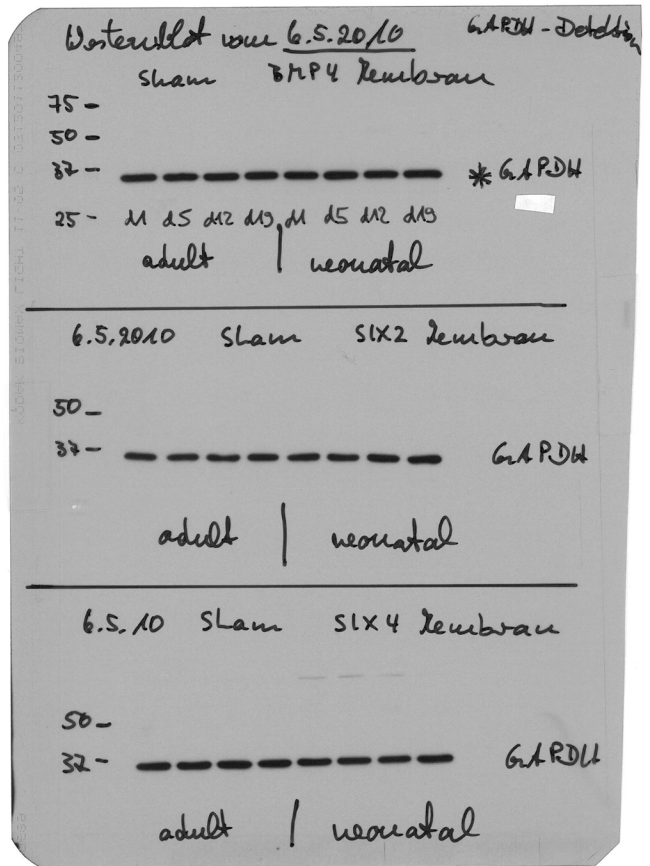 Westernblot vom 6.5.2010 GAPDH-Detektion
Sham BMP4 Membran
75 -
50 -
37 - * GAPDH
25 - d1 d5 d12 d19 | d1 d5 d12 d19
adult | neonatal
6.5.2010 Sham SIX2 Membran
50 -
37 - GAPDH
adult | neonatal
6.5.10 Sham SIX4 Membran
50 -
37 - GAPDH
adult | neonatal